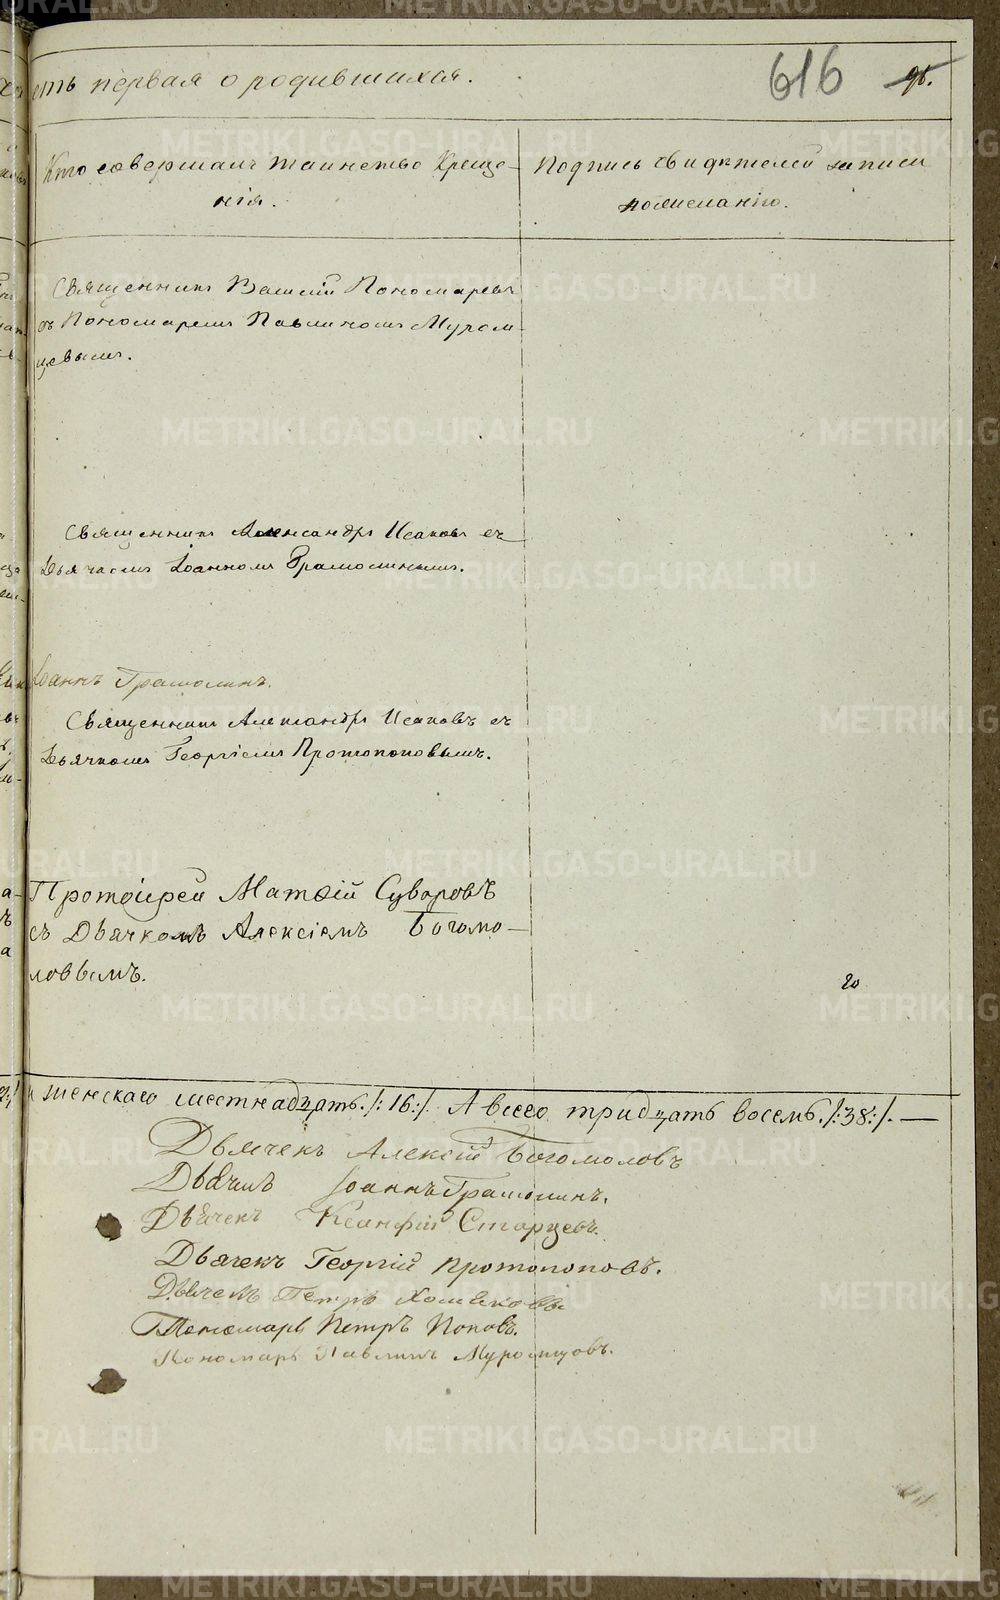 сть первая о родившихся.
616 96.
Кто совершалъ таинство Креще-
нія.
Подпись свидѣтелей записи
по желанію.
Священникъ Василій Пономаревъ
съ Пономаремъ Павлиномъ Муром-
цевымъ.
Священникъ Александръ Исаковъ съ
Дьячкомъ Іоанномъ Грамолинымъ.
Іоаннъ Грамолинъ.
Священникъ Александръ Исаковъ съ
Дьячкомъ Георгіемъ Протопоповымъ.
Протоіерей Матѳій Суворовъ
съ Дьячкомъ Алексіемъ Богомо-
ловымъ.
и женскаго шестнадцать./:16:/. А всего тридцать восемь./:38:/.—
Дьячекъ Алексій Богомоловъ
Дьячекъ Іоаннъ Грамолинъ.
Дьячекъ Ксанфій Старцевъ.
Дьячекъ Георгій Протопоповъ.
Дьячекъ Петръ Хомяковъ
Пономарь Петръ Поповъ.
Пономарь Павлинъ Муромцовъ.
METRIKI.GASO-URAL.RU